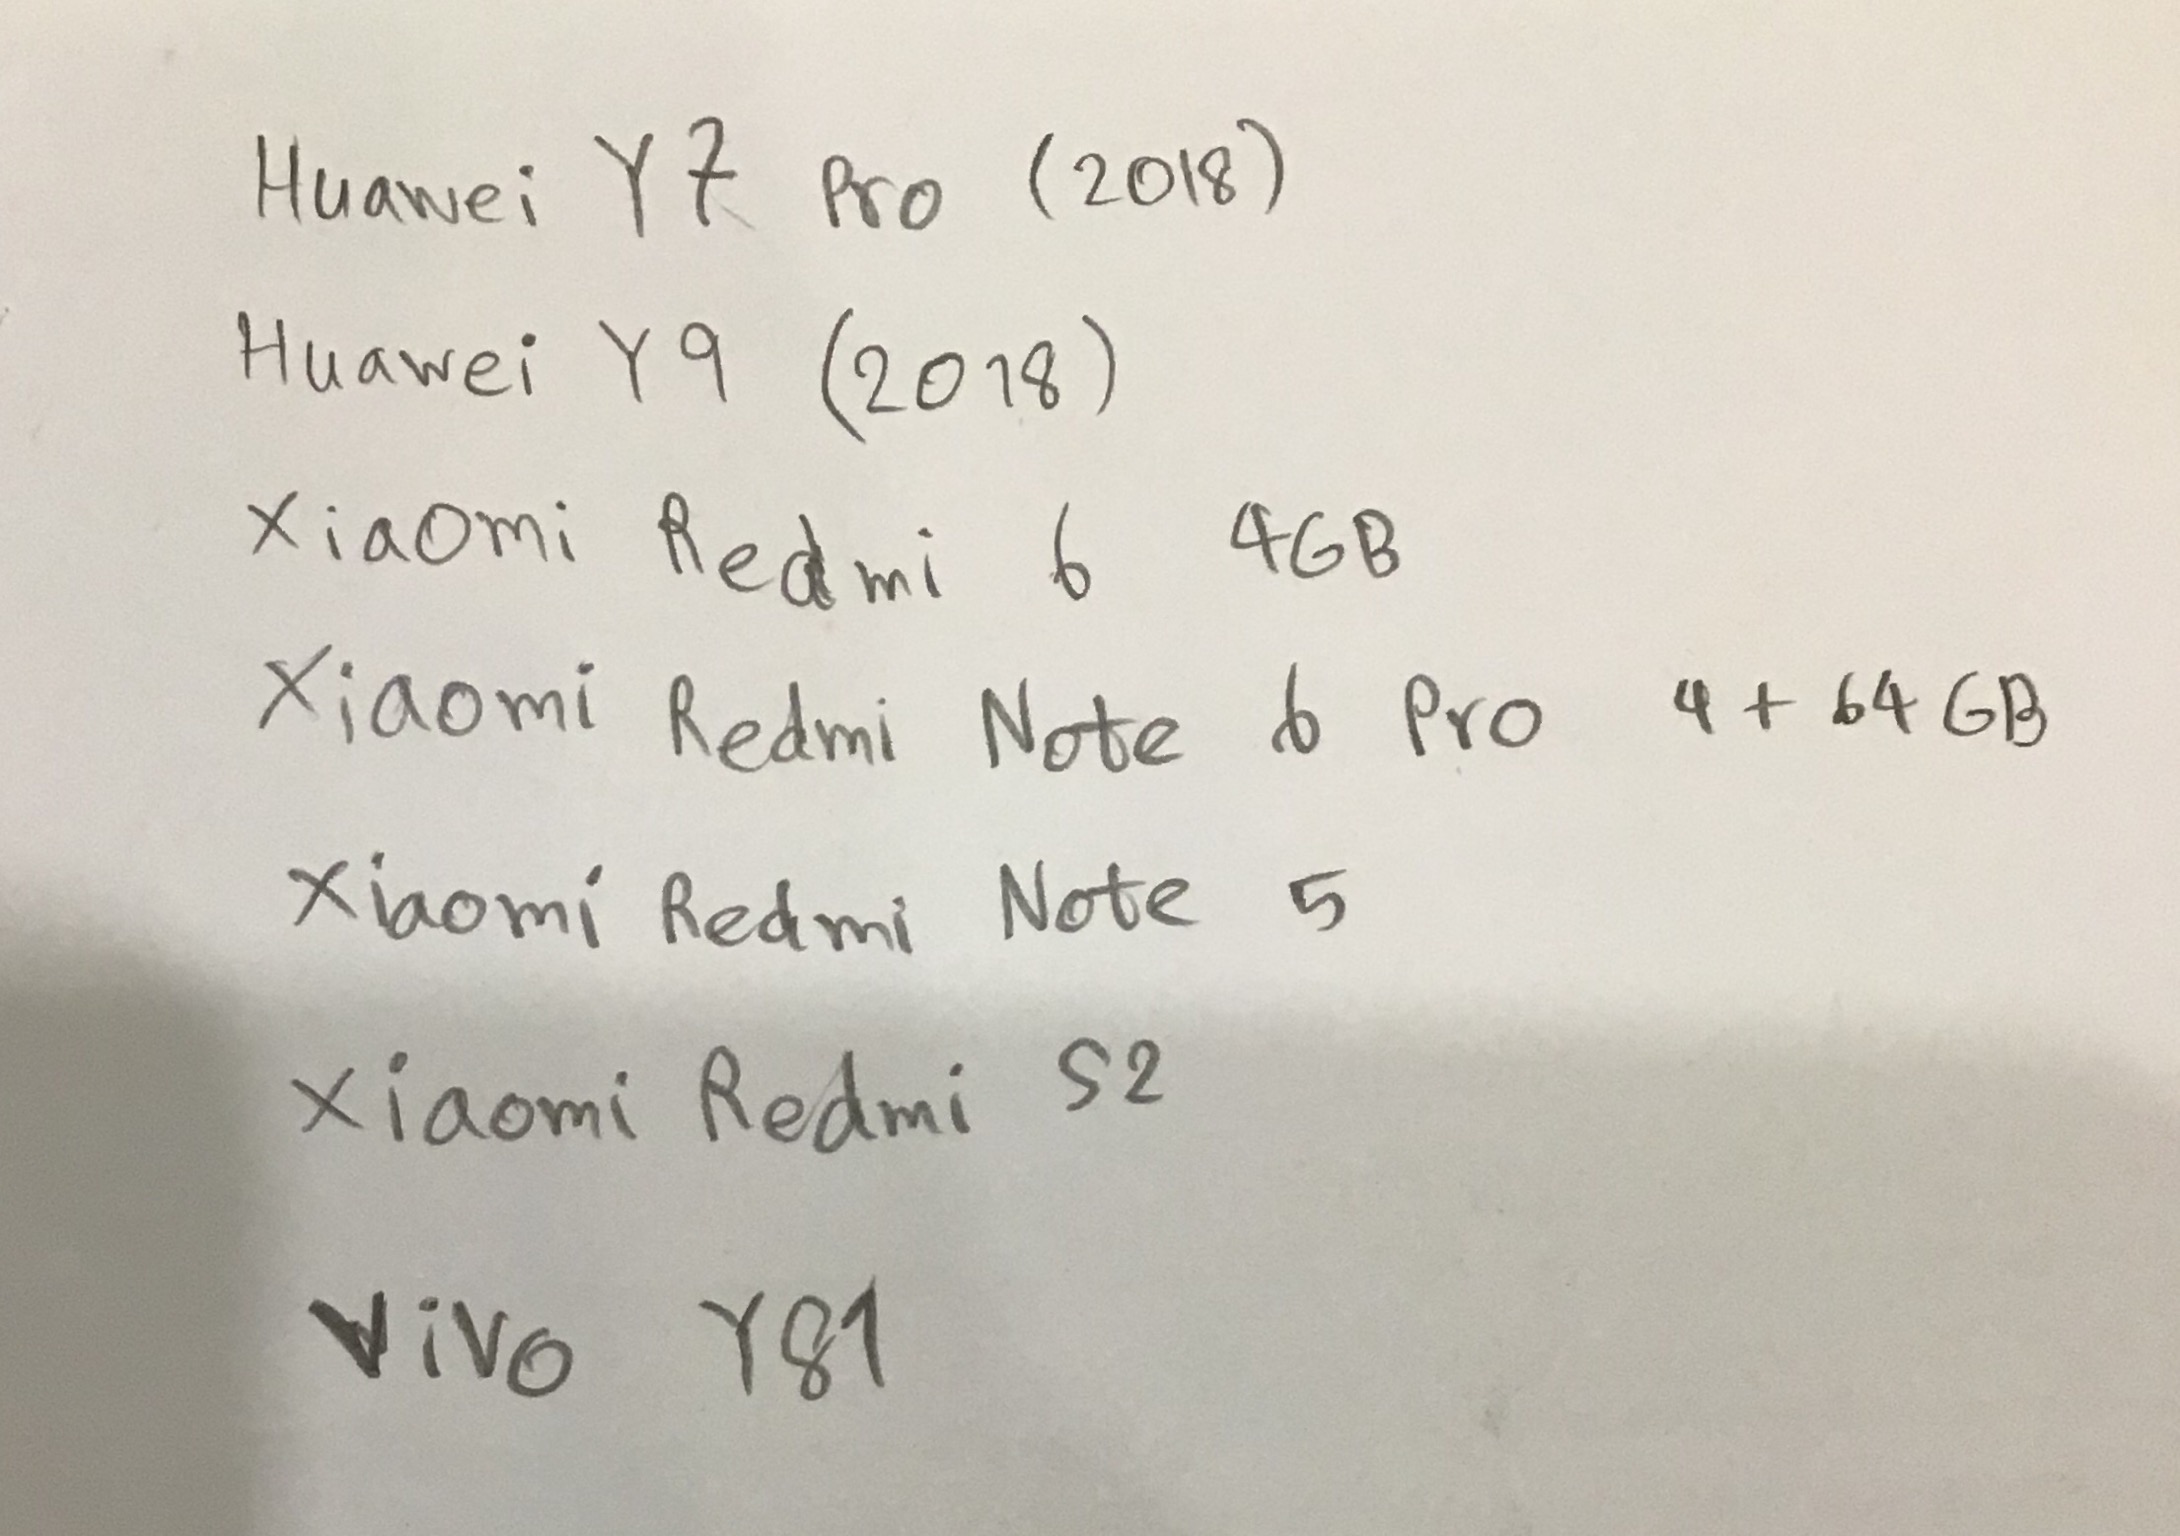 Huawei Y7 Pro (2018)
Huawei Y9 (2018)
Xiaomi Redmi 6 4GB
Xiaomi Redmi Note 6 Pro 4+64GB
Xiaomi Redmi Note 5
Xiaomi Redmi S2
Vivo Y81